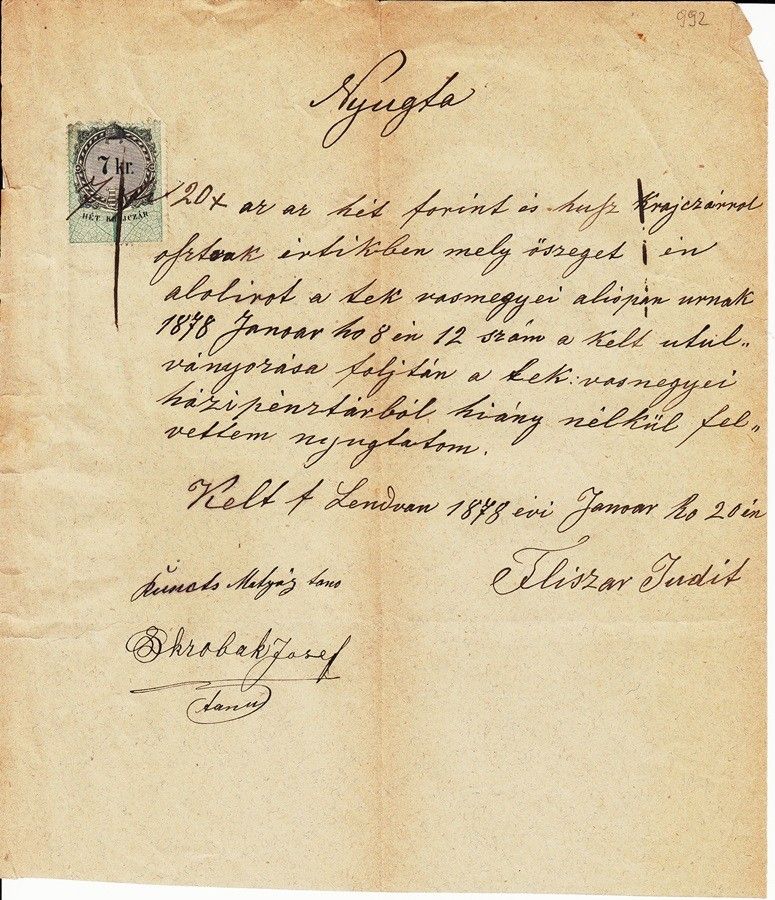 992
Nyugta
7 kr.
HÉT KRAJCZÁR
20x az az hét forint és husz Krajczárrol
osztrák értikben mely öszeget én
alolirot a tek vasmegyei alispán urnak
1878 Januar ho 8 én 12 szám a kelt utul„
ványozása foljtán a tek: vasmegyei
házipénztárból hiány nélkül fel„
vettem nyugtatom.
Kelt f Lendvan 1878 évi Januar ho 20 én
Fliszar Judit
Kunots Matyáz tano
Skrobak Josef
tanu